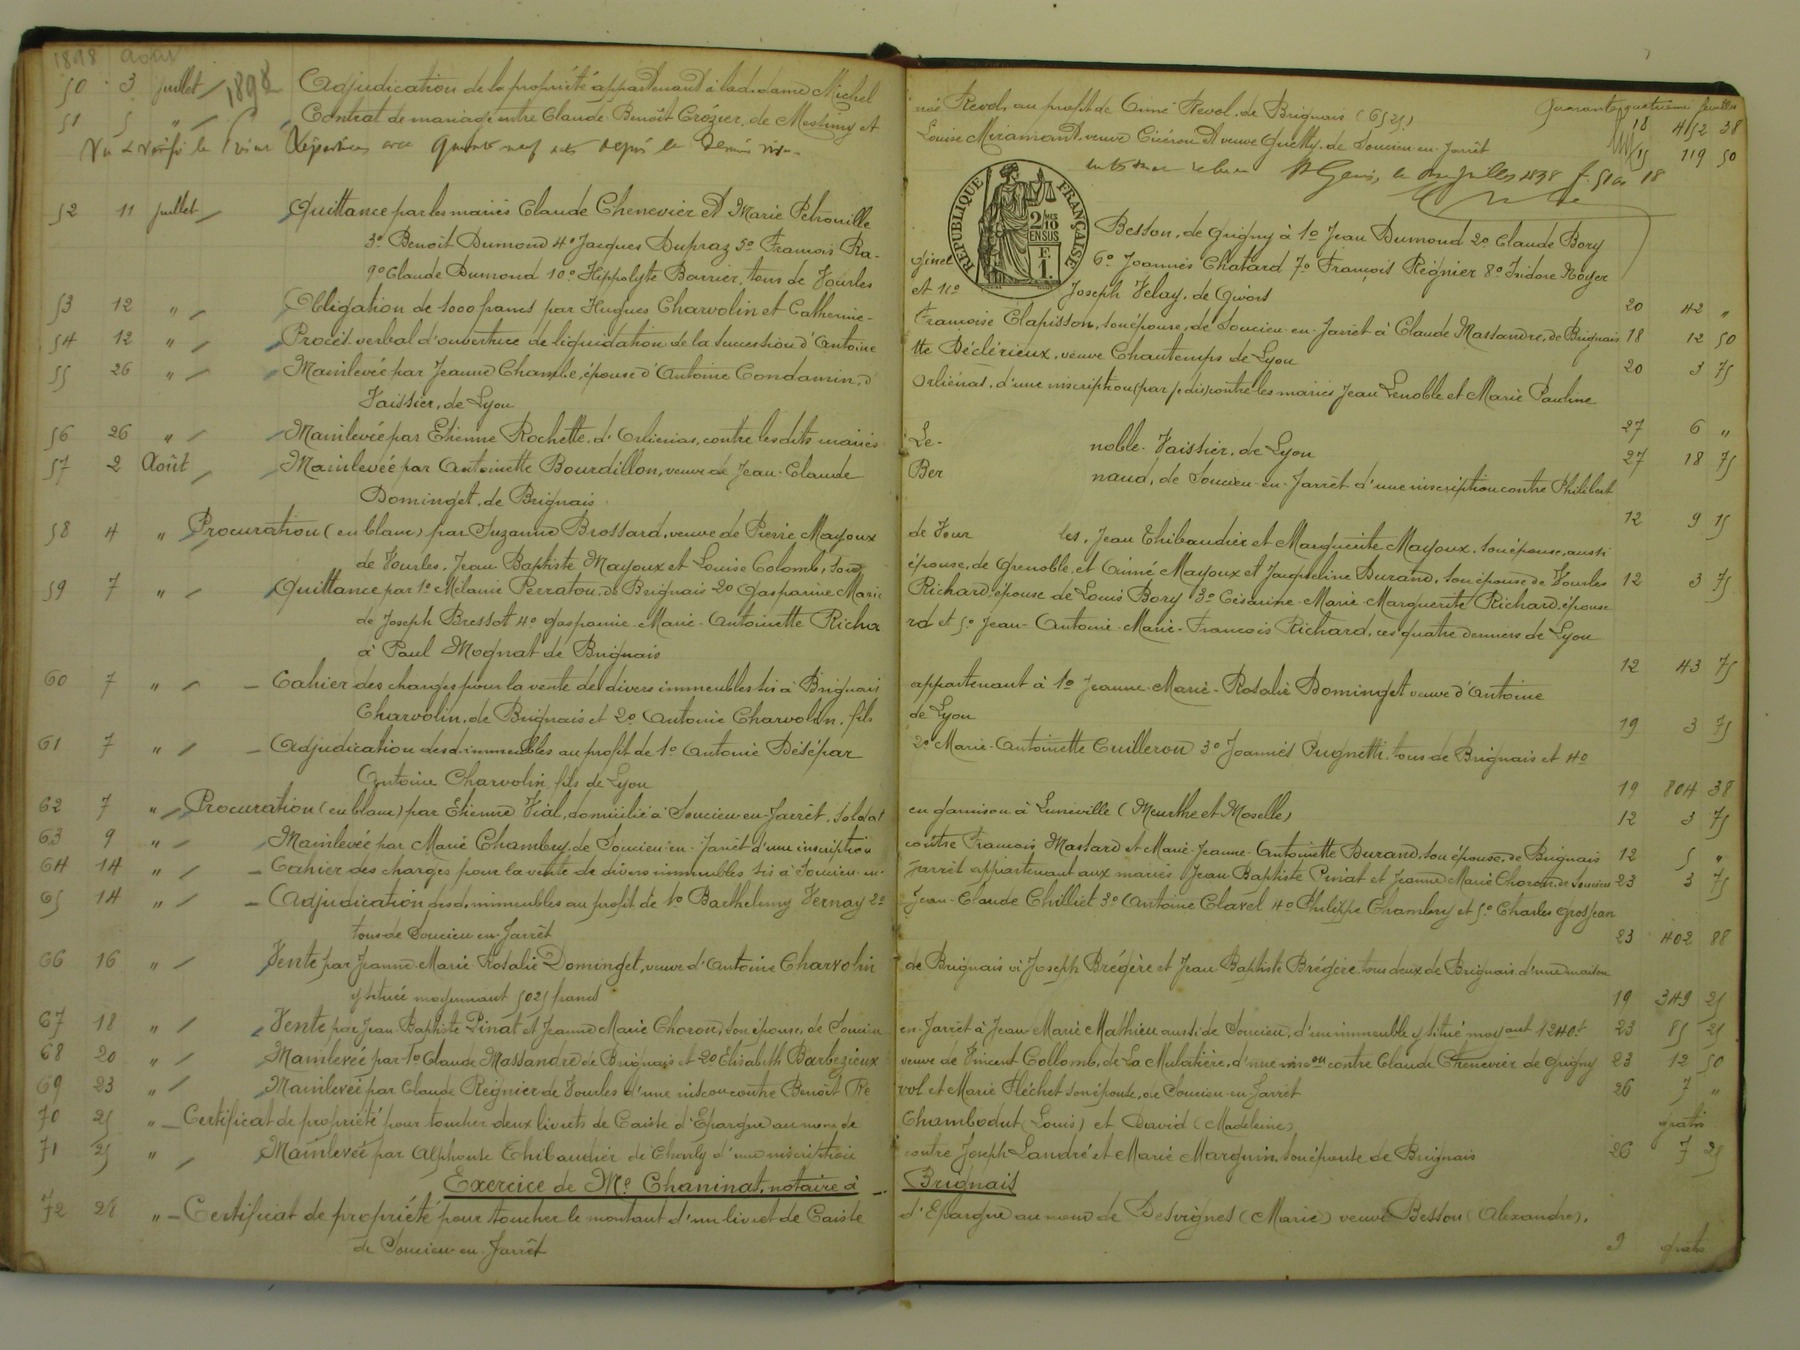 1898 août
50 3 juillet 1898 Adjudication de la propriété appartenant à lad. dame Michel née Revol, au profit de Aimé Revol, de Brignais (6525) 18 452 38
51 5 " Contrat de mariage entre Claude Benoît Crozier, de Messimy et Louise Miramond, veuve Cicéron et veuve Quetty, de Soucieu-en-Jarrêt 15 119 50
Vu & vérifié le Répertoire avec quarante neuf actes depuis le dernier visa St Genis, le onze juillet 1898 f. 51 Ce 18
52 11 juillet Quittance par les mariés Claude Chenevier et Marie Petrouille Besson, de Grigny à 1o Jean Dumond 2o Claude Bory
3o Benoît Dumond 4o Jacques Dupraz 5o François Ra-ginel 6o Joannès Chatard 7o François Régnier 8o Isidore Royer
9o Claude Dumond 10o Hippolyte Barrier, tous de Vourles et 11o Joseph Velay, de Givors 20 42 "
53 12 " Obligation de 1000 francs par Hugues Charvolin et Catherine-Françoise Clapisson, son épouse, de Soucieu-en-Jarrêt à Claude Massandre, de Brignais 18 12 50
54 12 " Procès verbal d'ouverture de liquidation de la succession d'Antoinette Déclérieux, veuve Chautemps de Lyon 20 3 75
55 26 " Mainlevée par Jeanne Chambe, épouse d'Antoine Condamin, d'Orliénas, d'une inscription (par je dis) contre les mariés Jean Lenoble et Marie Pauline
Vaissier, de Lyon 27 6 "
56 26 " Mainlevée par Etienne Rochette, d'Orliénas, contre lesdits mariés Le-noble-Vaissier, de Lyon 27 18 75
57 2 Août Mainlevée par Antoinette Bourdillon, veuve de Jean-Claude Bernaud, de Soucieu-en-Jarrêt d'une inscription contre Philibert
Dominget, de Brignais 12 9 15
58 4 " Procuration (en blanc) par Suzanne Brossard, veuve de Pierre Mayoux de Vourles, Jean Thibaudier et Marguerite Mayoux, son épouse, aussi
de Vourles, Jean Baptiste Mayoux et Louise Colomb, son épouse, de Grenoble, et Aimé Mayoux et Jacqueline Durand, son épouse de Vourles 12 3 75
59 7 " Quittance par 1o Mélanie Perraton, de Brignais 2o Gasparine Marie Richard, épouse de Louis Bory 3o Césarine-Marie-Marguerite Richard, épouse
de Joseph Bressot 4o Gasparine-Marie-Antoinette Richard et 5o Jean-Antoine-Marie-François Richard, ces quatre derniers de Lyon
à Paul Mognat de Brignais 12 43 75
60 7 " Cahier des charges pour la vente de divers immeubles sis à Brignais appartenant à 1o Jeanne-Marie-Rosalie Dominget veuve d'Antoine
Charvolin, de Brignais et 2o Antoine Charvolin, fils de Lyon 19 3 75
61 7 " Adjudication desd. immeubles au profit de 1o Antoine Déséfar 2o Marie-Antoinette Cuilleron 3o Joannès Pugnetti, tous de Brignais et 4o
Antoine Charvolin fils de Lyon 19 804 38
62 7 " Procuration (en blanc) par Etienne Vial, domicilié à Soucieu-en-Jarrêt, soldat en garnison à Lunéville (Meurthe et Moselle) 12 3 75
63 9 " Mainlevée par Marie Chambry, de Soucieu-en-Jarrêt d'une inscription contre François Massard et Marie-Jeanne-Antoinette Durand, son épouse, de Brignais 12 5 "
64 14 " Cahier des charges pour la vente de divers immeubles sis à Soucieu-en-Jarrêt appartenant aux mariés Jean Baptiste Pinat et Jeanne Marie Choron, de Soucieu 23 3 75
65 14 " Adjudication desd. immeubles au profit de 1o Barthelemy Vernay 2o Jean-Claude Chilliet 3o Antoine Clavel 4o Philippe Chambry et 5o Charles Grosjean
tous de Soucieu-en-Jarrêt 23 402 88
66 16 " Vente par Jeanne-Marie Rosalie Dominget, veuve d'Antoine Charvolin de Brignais à Joseph Brégère et Jean Baptiste Brégère tous deux de Brignais, d'une maison
y située moyennant 5025 francs 19 349 25
67 18 " Vente par Jean Baptiste Pinat et Jeanne Marie Choron, son épouse, de Soucieu-en-Jarrêt à Jean Marie Mathieu aussi de Soucieu, d'un immeuble y situé moyant 1240f 23 85 25
68 20 " Mainlevée par 1o Claude Massandre de Brignais et 2o Elisabeth Barbezieux veuve de Vincent Collomb, de La Mulatière, d'une insc.on contre Claude Chenevier de Grigny 23 12 50
69 23 " Mainlevée par Claude Régnier de Vourles d'une inscon contre Benoît Revol et Marie Fléchet son épouse, de Soucieu-en-Jarrêt 26 7 "
70 25 " Certificat de propriété pour toucher deux livrets de Caisse d'Epargne au nom de Chambodut (Louis) et David (Madeleine) gratis
71 25 " Mainlevée par Alphonse Thibaudier de Charly d'une inscription contre Joseph Landré et Marie Marguin, son épouse de Brignais 26 7 25
Exercice de Me Chaninat, notaire à Brignais
72 28 " Certificat de propriété pour toucher le montant d'un livret de Caisse d'Epargne au nom de Desvignes (Marie) veuve Besson (Alexandre),
de Soucieu-en-Jarrêt 9 gratis
quarante quatrième feuillet
RÉPUBLIQUE FRANÇAISE
2/10 EN SUS
F. 1.